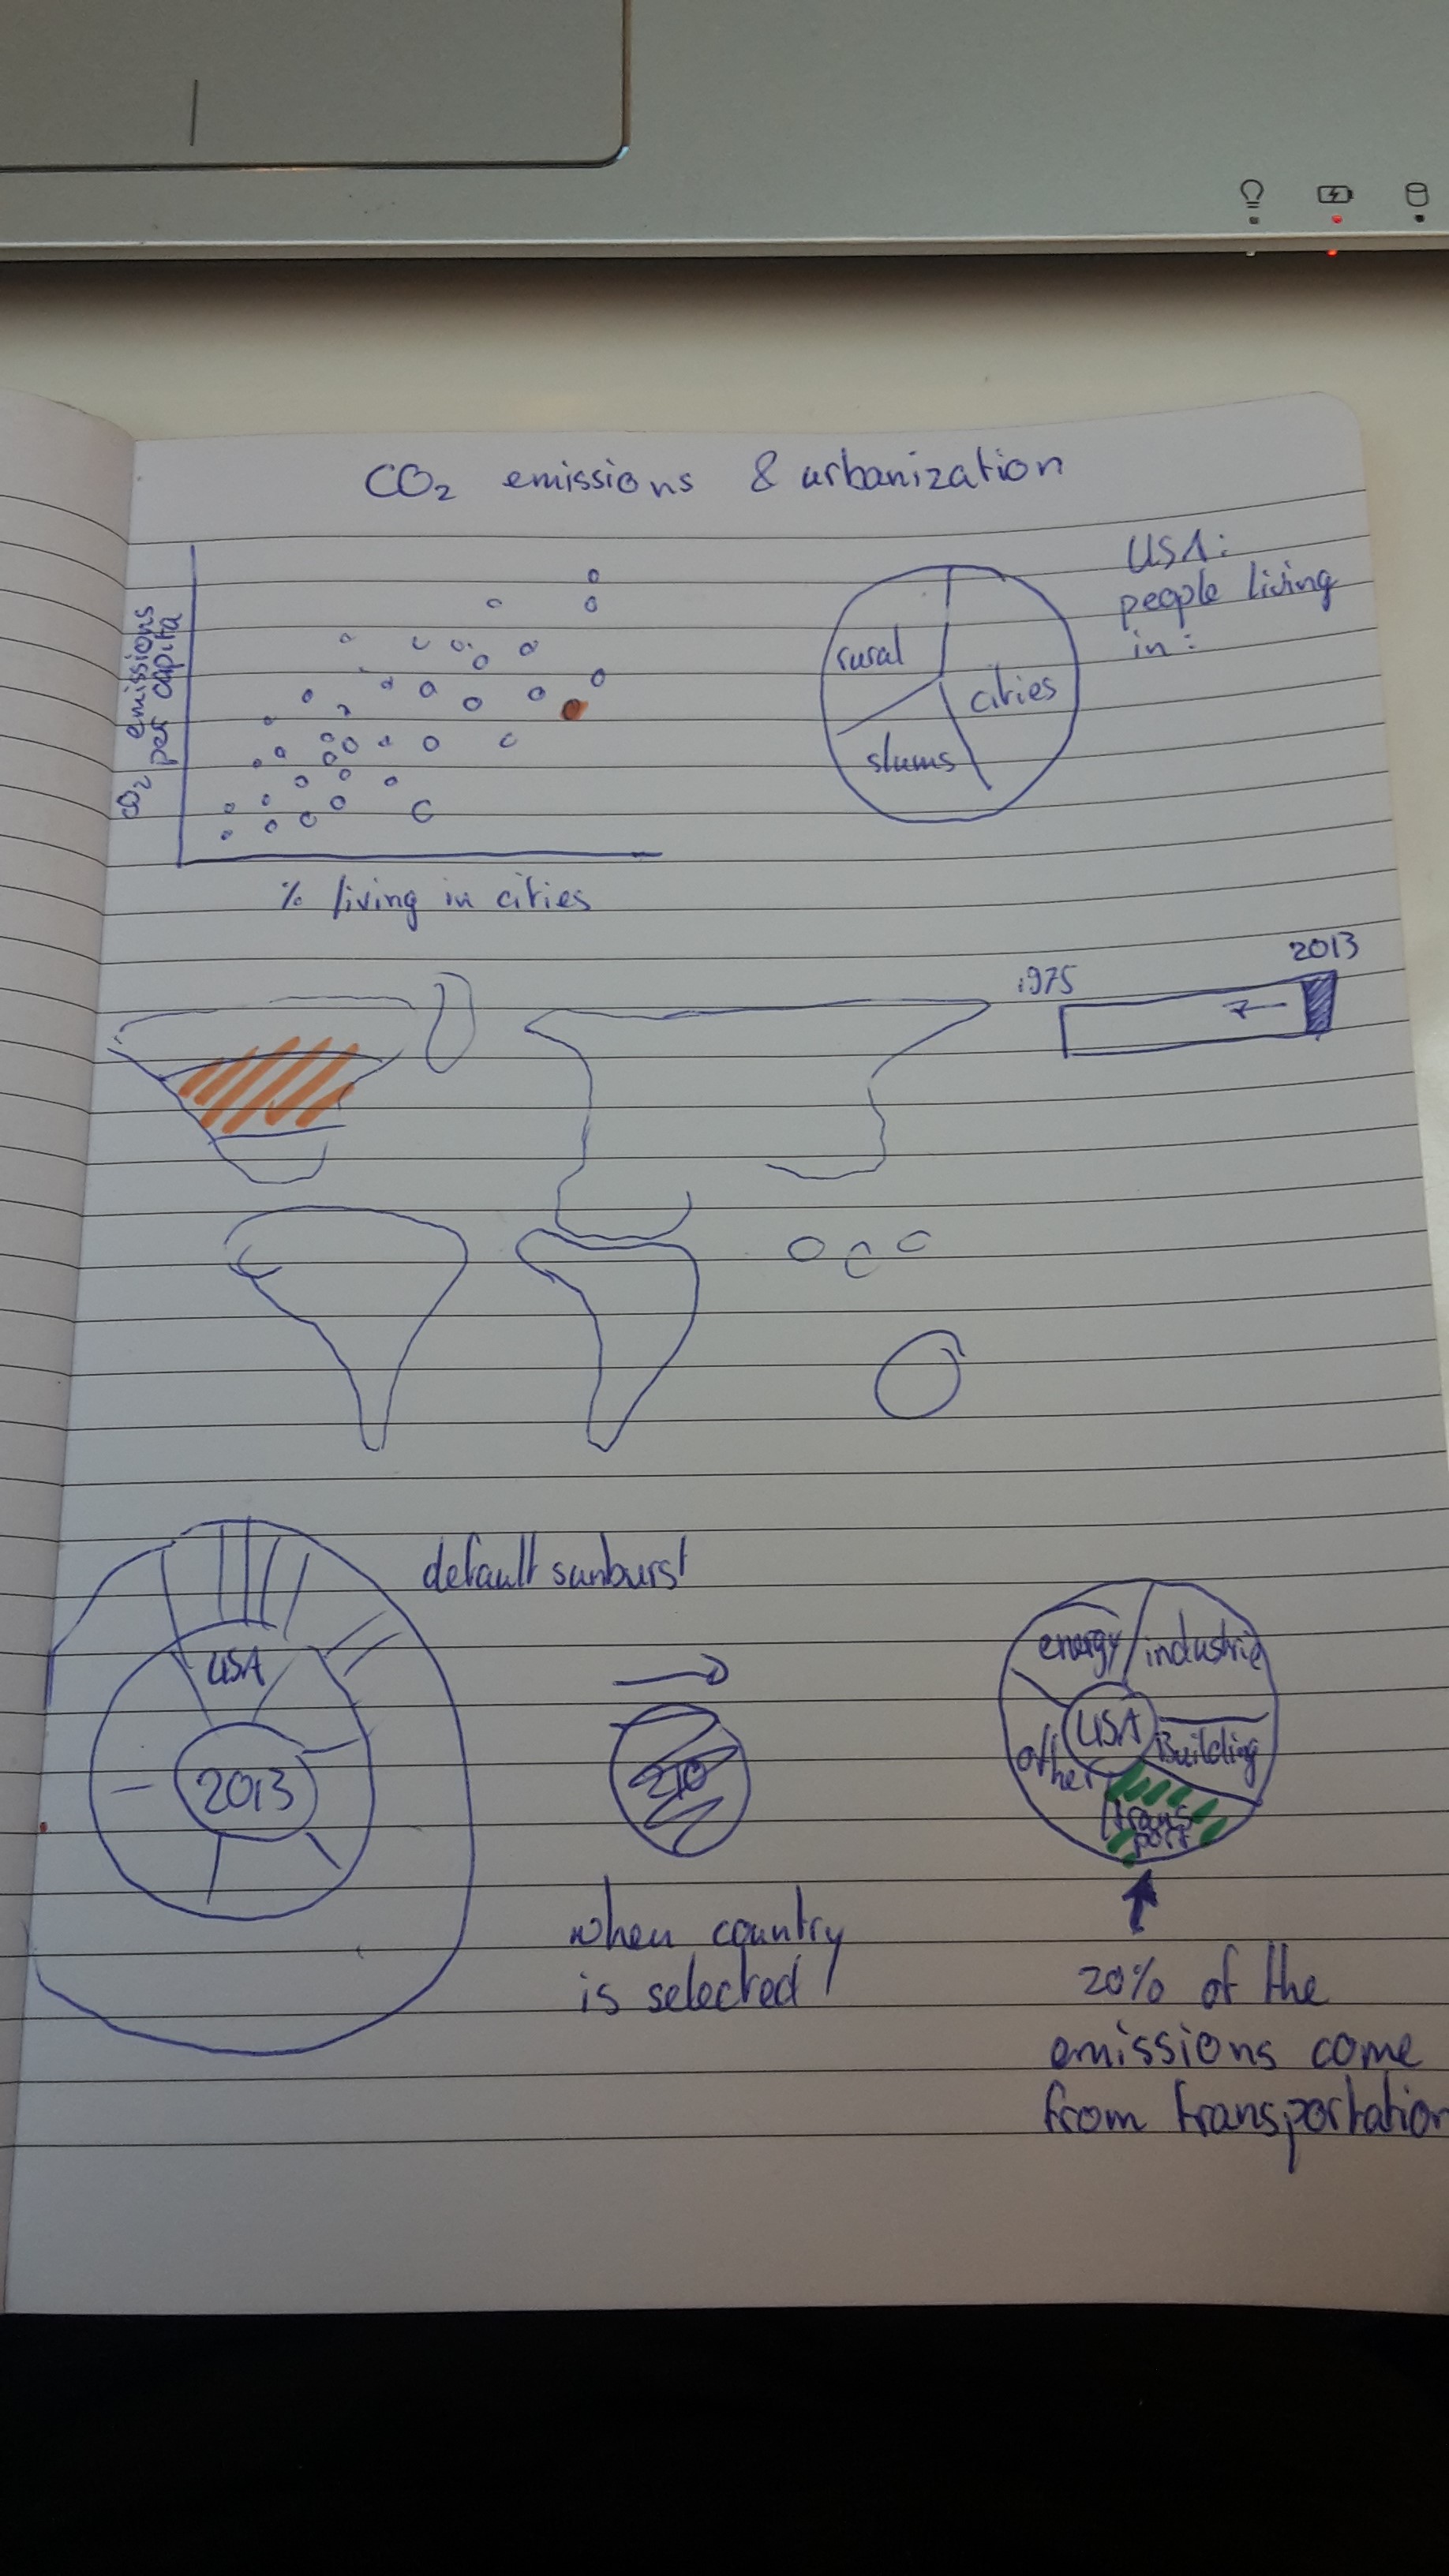 CO₂ emissions & urbanization
CO₂ emissions
per capita
% living in cities
rural
cities
slums
USA:
people living
in:
1975
2013
default sunburst
USA
2013
when country
is selected
energy
industrie
USA
other
Building
trans
port
20% of the
emissions come
from transportation